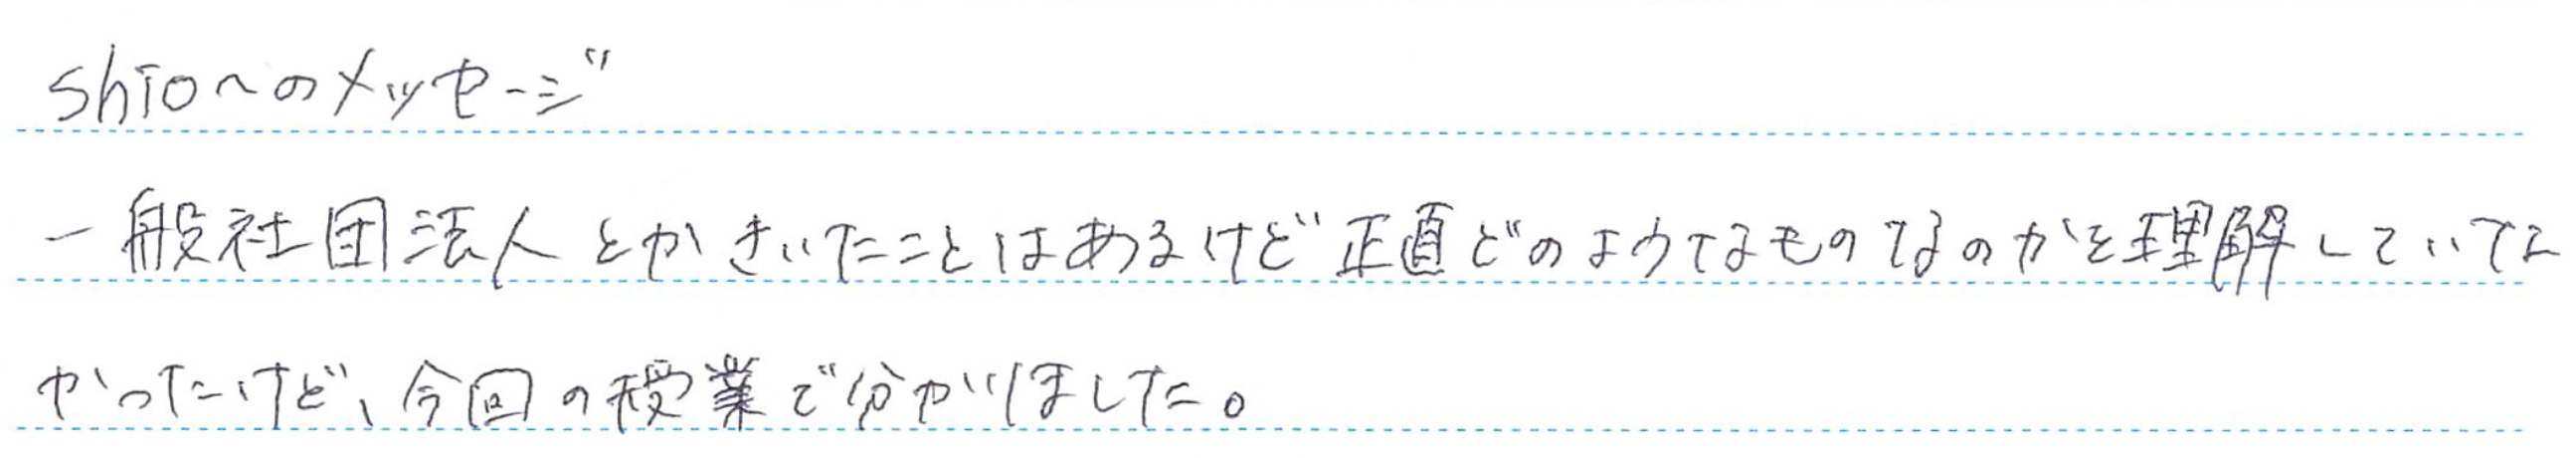 shioへのメッセージ
一般社団法人とかきいたことはあるけど正直どのようなものなのかを理解していてに
かったけど、今回の授業で分かりました。